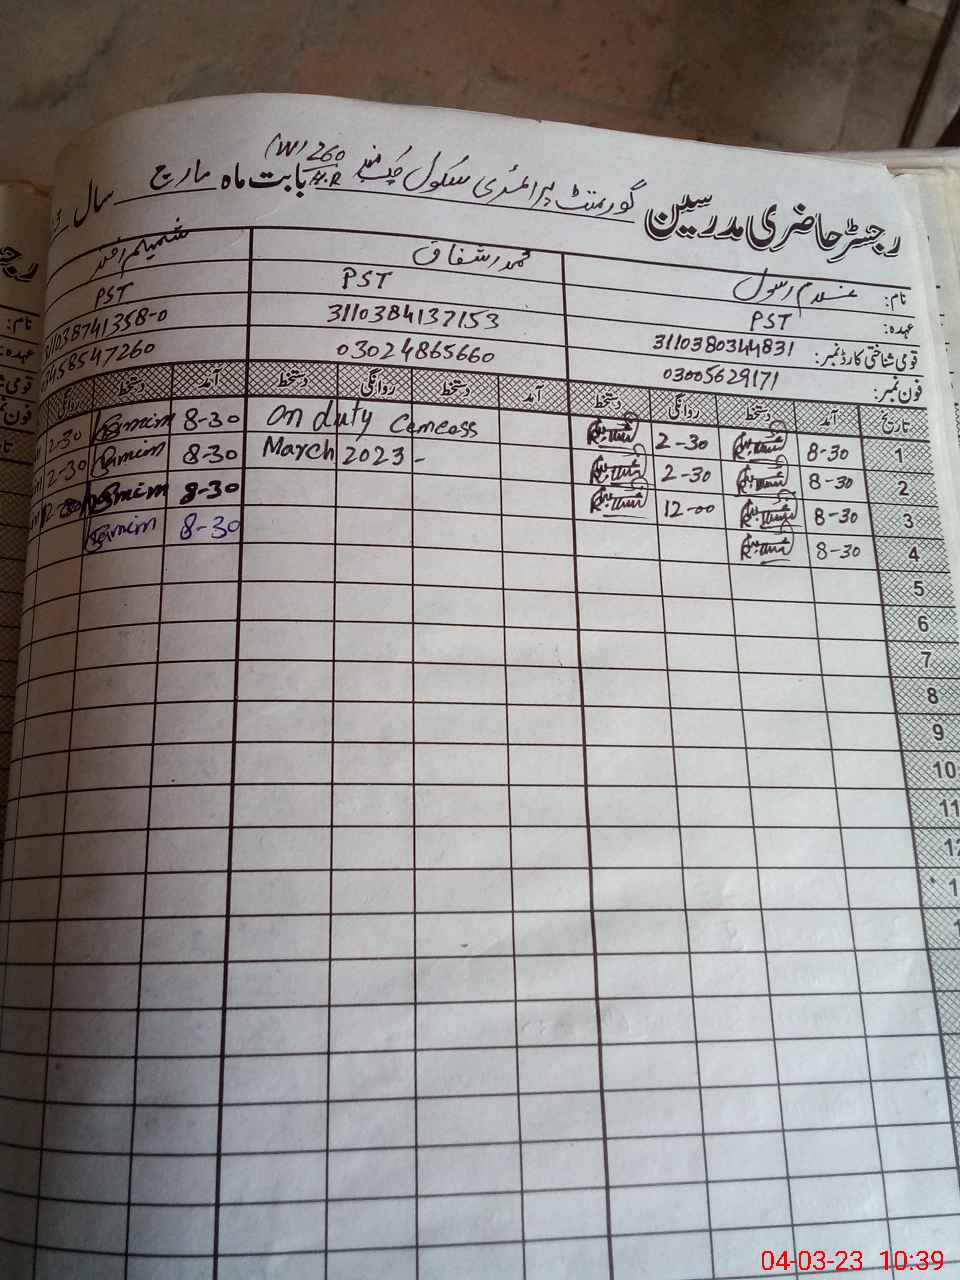 رجسٹر حاضری مدرسین گورنمنٹ پرائمری سکول چک نمبر 260/H.R (W) بابت ماہ مارچ سال
نام: غلام رسول محمد اشفاق شمیم
عہدہ: PST PST PST
قومی شناختی کارڈ نمبر: 3110380344831 3110384137153 311038741358-0
فون نمبر: 03005629171 03024865660 3458547260
تاریخ آمد دستخط روانگی دستخط آمد دستخط روانگی دستخط آمد دستخط روانگی
1 8-30 2-30 On duty 8-30 2-30
2 8-30 2-30 March 2023 - 8-30 2-30
3 8-30 12-00 8-30
4 8-30 8-30
5
6
7
8
9
10
11
12
04-03-23 10:39